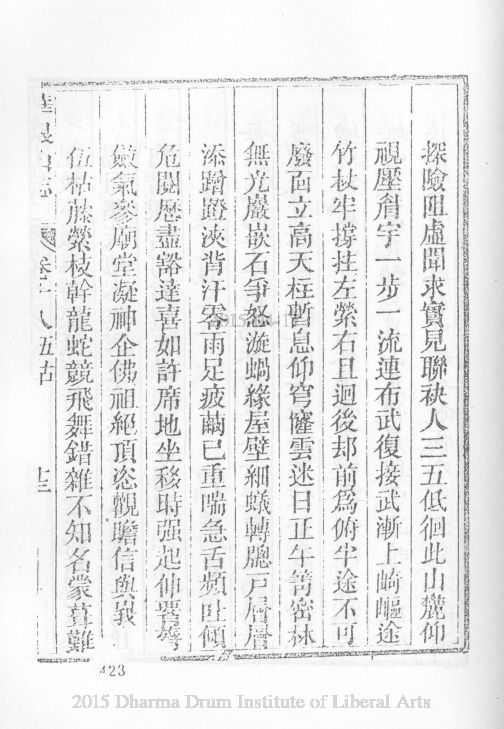 探險阻虛聞求實見聯袂人三五低徊此山麓仰
視壓眉宇一步一流連布武復接武漸上崎嶇途
竹杖牢撐拄左縈右且迴後却前爲俯半途不可
廢面立高天柱暫息仰穹窿雲迷日正午箐密林
無光巖嵌石爭怒漩蝸緣屋壁細蟻轉牕戶層層
添蹭蹬浹背汗零雨足疲繭已重喘急舌頻吐傾
危閱歷盡豁達喜如許席地坐移時强起伸腰膂
斂氣參廟堂凝神企佛祖絕頂恣觀瞻信與我
伍枯藤縈枝幹龍蛇競飛舞錯雜不知名蒙葺難
志 卷 八 五古 十三
423
2015 Dharma Drum Institute of Liberal Arts